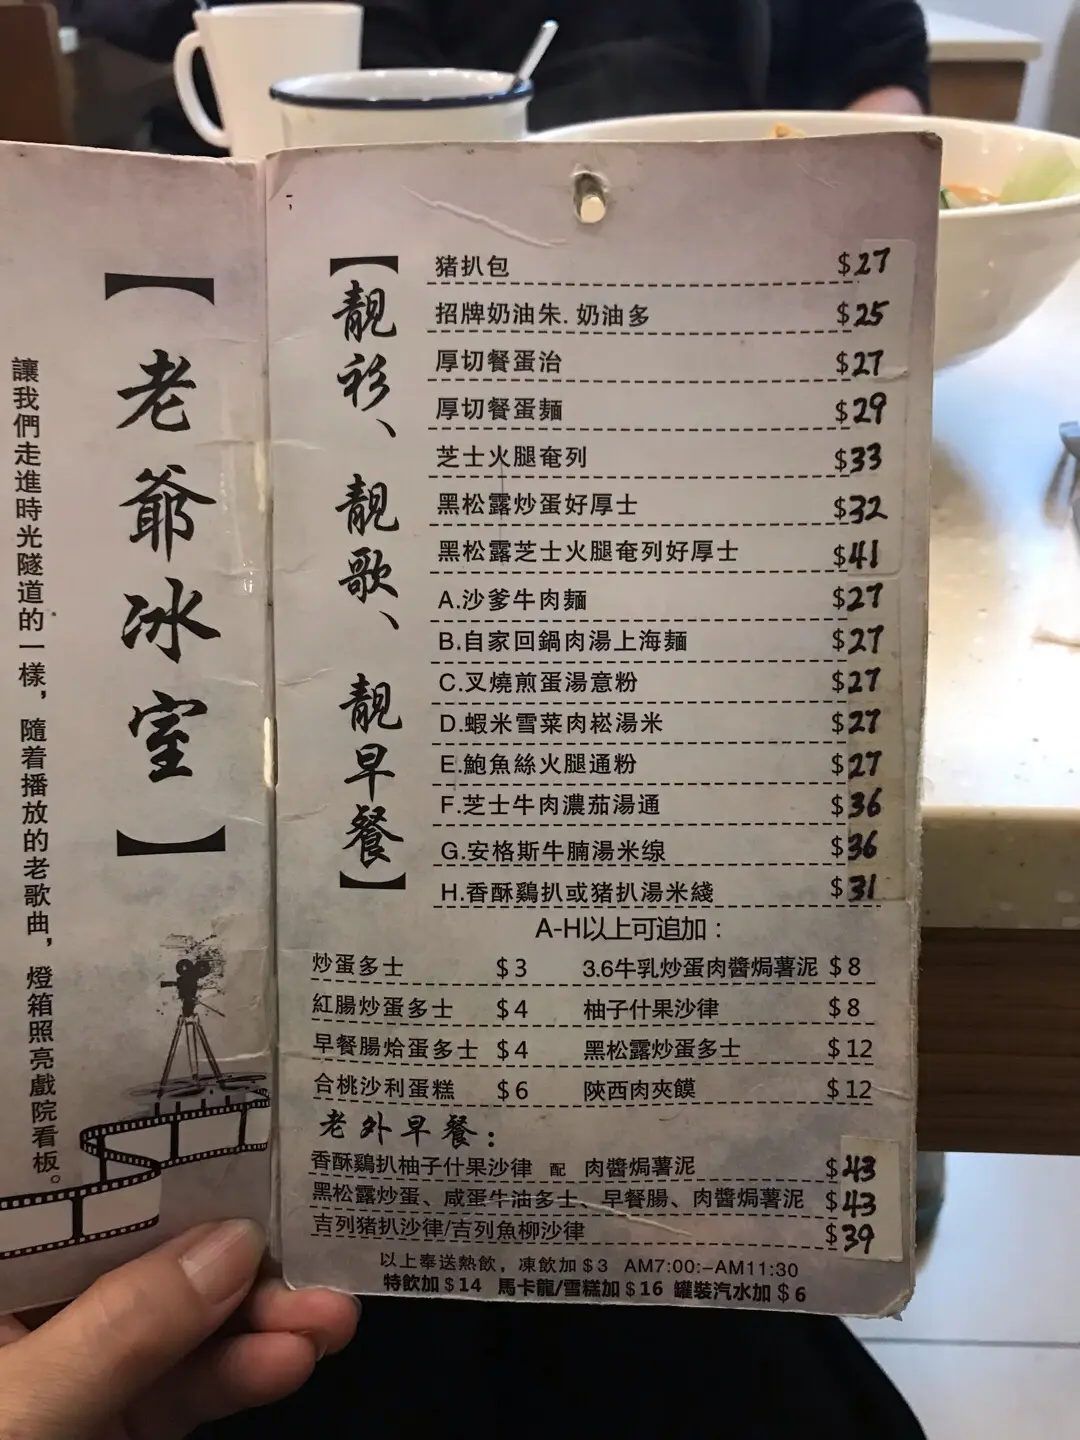 【老爺冰室】
讓我們走進時光隧道的一樣，隨着播放的老歌曲，燈箱照亮戲院看板。
【靚衫、靚歌、靚早餐】
猪扒包 $27
招牌奶油朱.奶油多 $25
厚切餐蛋治 $27
厚切餐蛋麵 $29
芝士火腿奄列 $33
黑松露炒蛋好厚士 $32
黑松露芝士火腿奄列好厚士 $41
A.沙爹牛肉麵 $27
B.自家回鍋肉湯上海麵 $27
C.叉燒煎蛋湯意粉 $27
D.蝦米雪菜肉崧湯米 $27
E.鮑魚絲火腿通粉 $27
F.芝士牛肉濃茄湯通 $36
G.安格斯牛腩湯米線 $36
H.香酥鷄扒或猪扒湯米綫 $31
A-H以上可追加：
炒蛋多士 $3 3.6牛乳炒蛋肉醬焗薯泥 $8
紅腸炒蛋多士 $4 柚子什果沙律 $8
早餐腸烚蛋多士 $4 黑松露炒蛋多士 $12
合桃沙利蛋糕 $6 陝西肉夾饃 $12
老外早餐：
香酥鷄扒柚子什果沙律 配 肉醬焗薯泥 $43
黑松露炒蛋、咸蛋牛油多士、早餐腸、肉醬焗薯泥 $43
吉列猪扒沙律/吉列魚柳沙律 $39
以上奉送熱飲，凍飲加$3 AM7:00:-AM11:30
特飲加$14 馬卡龍/雪糕加$16 罐裝汽水加$6